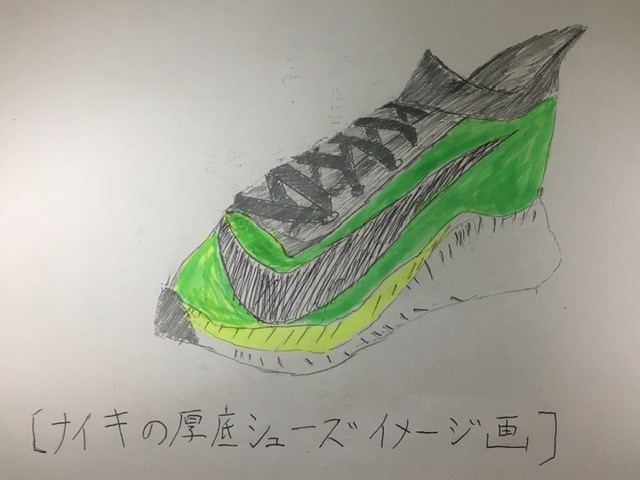 [ナイキの厚底シューズイメージ画]